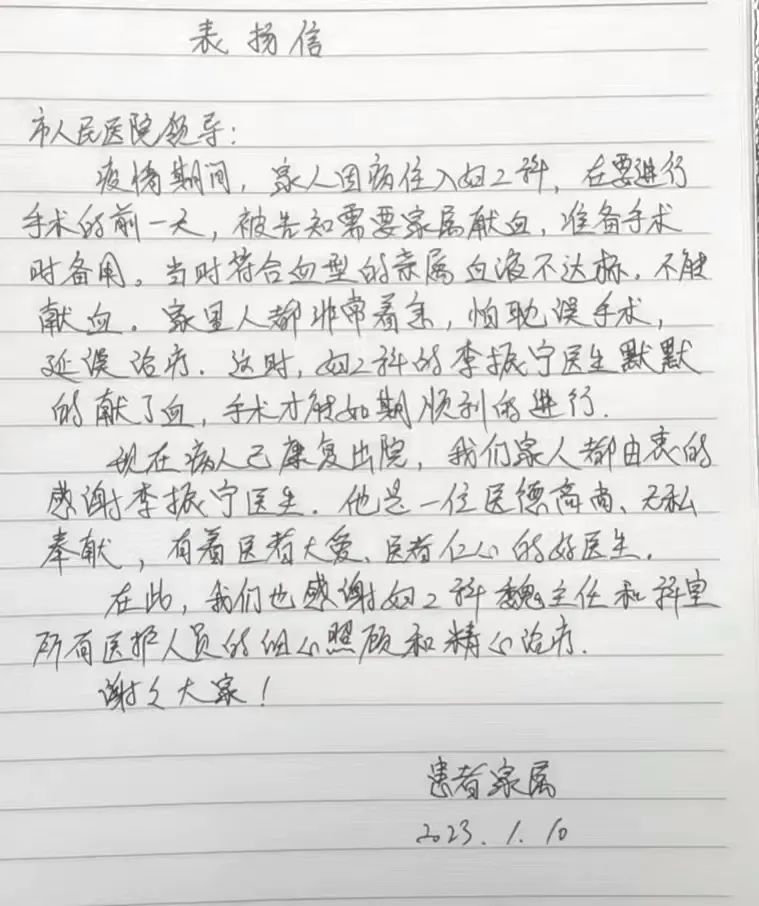 表扬信
市人民医院领导：
疫情期间，家人因病住入妇2科，在要进行
手术的前一天，被告知需要家属献血，准备手术
时备用。当时符合血型的亲属血液不达标，不能
献血。家里人都非常着急，怕耽误手术，
延误治疗。这时，妇2科的李振宁医生默默
的献了血，手术才能如期顺利的进行.
现在病人已康复出院，我们家人都由衷的
感谢李振宁医生. 他是一位医德高尚、无私
奉献，有着医者大爱、医者仁心的好医生.
在此，我们也感谢妇2科魏主任和科室
所有医护人员的细心照顾和精心治疗.
谢谢大家！
患者家属
2023.1.10